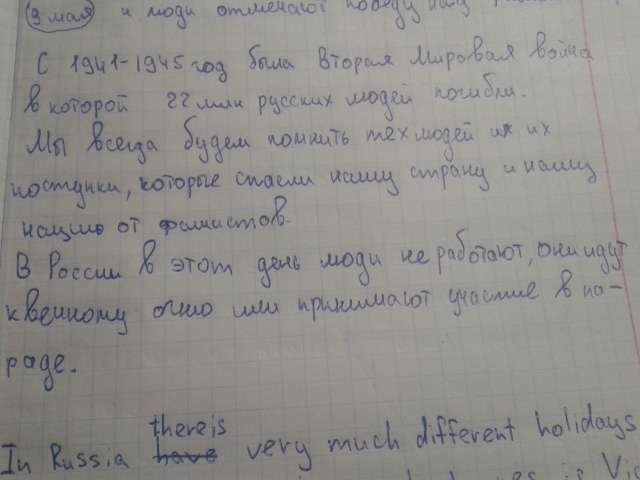 9 мая и люди отмечают победу над
С 1941-1945 год была Вторая Мировая война
в которой 22 млн русских людей погибли.
Мы всегда будем помнить тех людей и их
поступки, которые спасли нашу страну и нашу
нацию от фашистов.
В России в этот день люди не работают, они идут
к вечному огню или принимают участие в па-
раде.
there is
In Russia have very much different holidays
is Vi